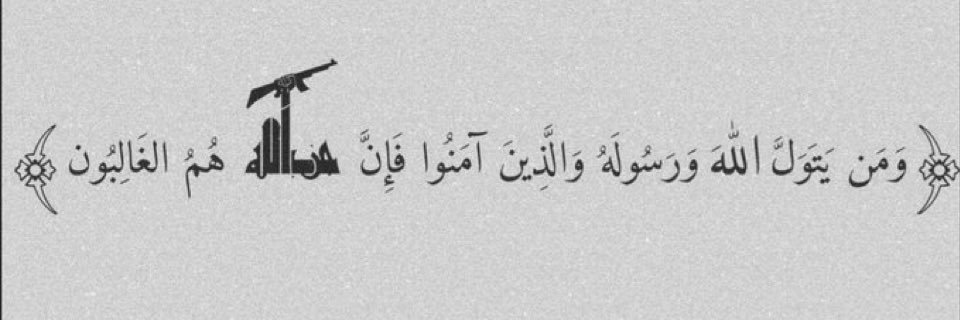 ﴿ وَمَن يَتَوَلَّ اللهَ وَرَسُولَهُ وَالَّذِينَ آمَنُوا فَإِنَّ حزب الله هُمُ الغَالِبُون ﴾